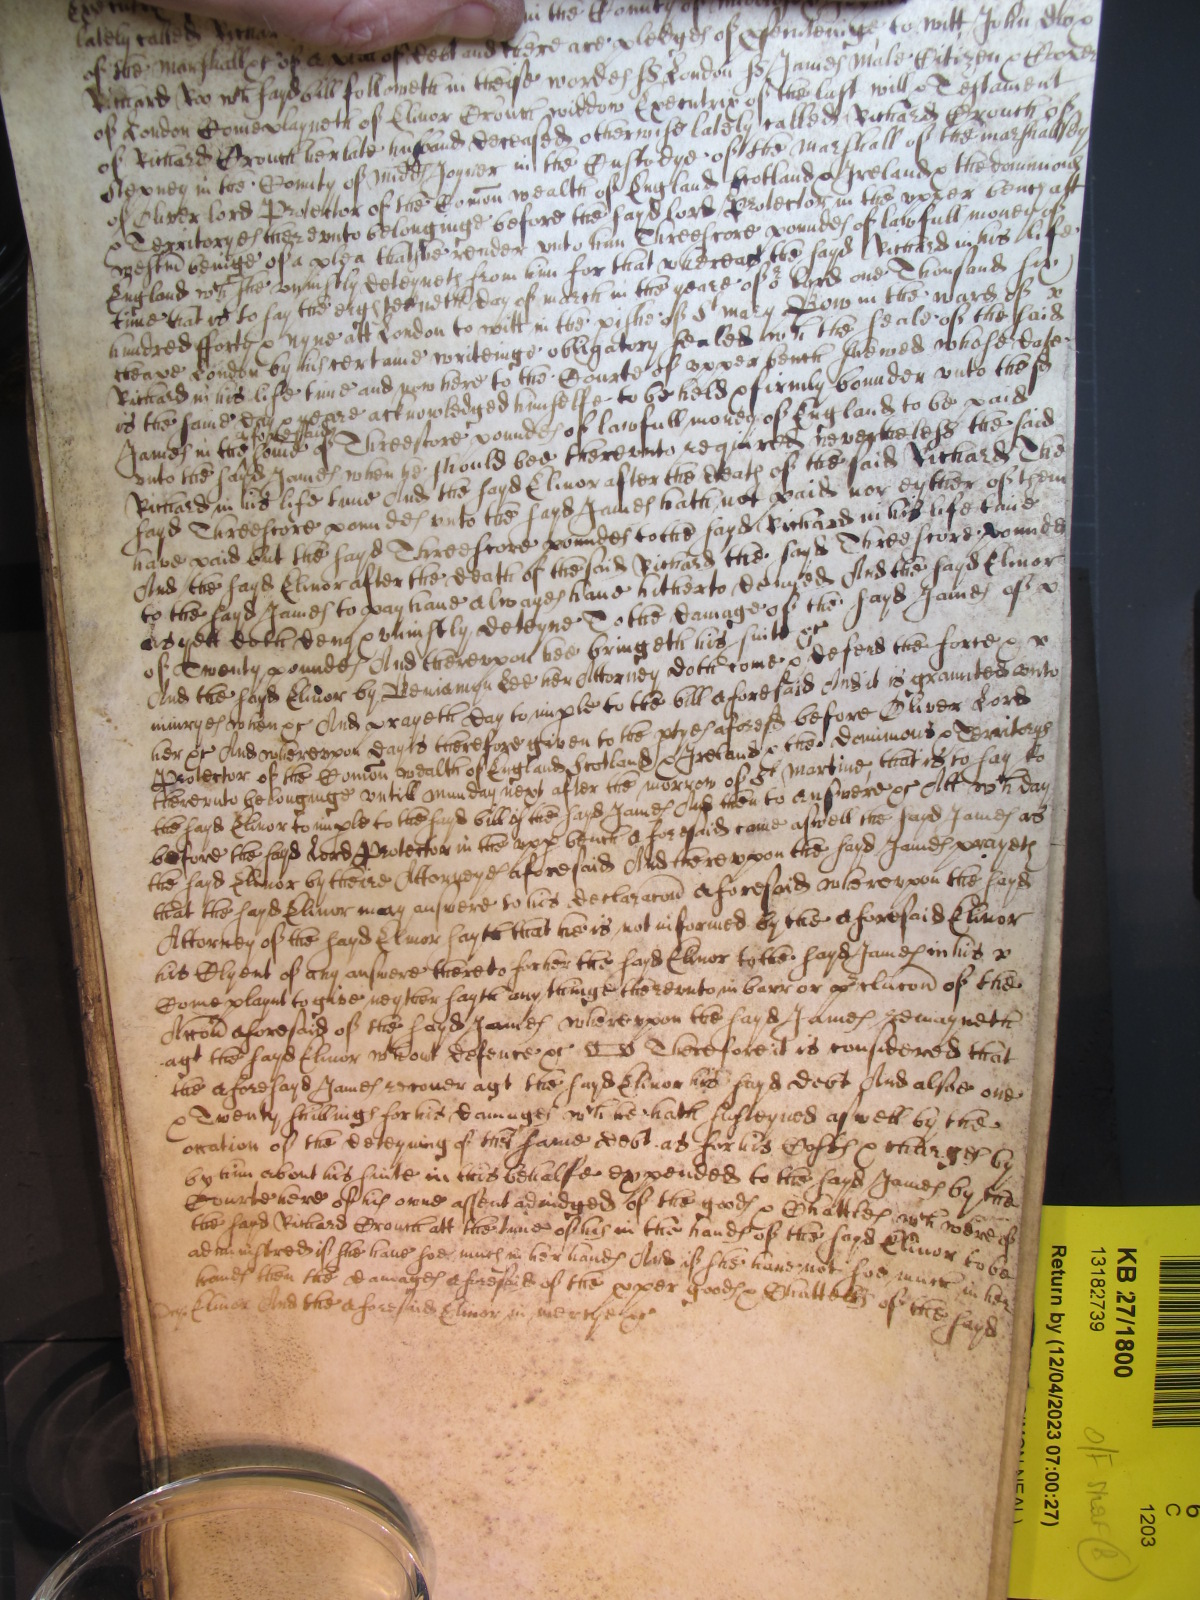 Executrix in the County of Midd
lately called Richard
of the Marshall &c of a plea of debt and there are pledges of p̱secutinge to witt John Doo &
Richard Roo wch sayd bill followeth in theise wordes ss London ss James Male Citizen &
of London Complayneth of Elinor Crouch widdow Executrix of the last will & Testament
of Richard Crouch her late husband deceased otherwise lately called Richard Crouch of
in the County of Midds Joyner in the Custodye of the Marshall of the Marshallsey
of Oliver lord Protector of the Comon wealth of England Scotland & Ireland & the dominions
& Territoryes therevnto belonginge before the sayd lord Protector in the vpper bench att
westm̄ beinge of a plea that she render vnto him Threescore poundes of lawfull money of
England wch she vniustly deteyneth from him for that whereas the sayd Richard in his life
time that is to say the eighteeneth day of march in the yeare of or lord one Thousand six
hundred fforty & nyne att London to witt in the p̱ishe of St mary Bow in the ward of &
Cheape London by his certaine writeinge obligatory sealed wth the seale of the said
Richard in his life time and now here to the Courte of vpper bench shewed whose date
is the same day & yeare acknowledged himselfe to be held & firmly bounden vnto the sd
James in the some of Threescore poundes of lawfull money of England to be paid
aforesaid
vnto the sayd James when he should bee therevnto required neverthelesse the said
Richard in his life time And the sayd Elinor after the death of the said Richard The
sayd Threescore poundes vnto the sayd James hath not paid nor eyther of them
have paid but the sayd Threescore poundes to the sayd Richard in his life time
And the sayd Elinor after the death of the said Richard the sayd Threescore poundes
to the sayd James to pay haue alwayes haue hitherto denyed And the sayd Elinor
as yett doth deny & vniustly deteyne To the damage of the sayd James of &
of Twenty poundes And therevpon hee bringeth his suite &c
And the sayd Elinor by Beniamyn Lee her Attorney doth come & defend the force & &
iniuryes when &c And prayeth day to imple to the bill aforesaid And it is graunted vnto
her &c And wherevpon day is therefore given to the ptyes aforesd before Oliver Lord
Protector of the Comon wealth of England Scotland & Ireland & the dominions & Territorys
therevnto belonginge vntill munday next after the morrow of St Martine that is to say to
the sayd Elinor to imple to the sayd bill of the sayd James And then to answere &c Att wch day
before the sayd Lord Protector in the vpp bench aforesaid came aswell the sayd James as
the sayd Elinor by theire Attorneyes aforesaid And therevpon the sayd James prayeth
that the sayd Elinor may answere to his declaracon aforesaid wherevpon the sayd
Attorney of the sayd Elinor sayth that he is not informed by the aforesaid Elinor
his Clyent of any answere thereto for her the sayd Elinor to the sayd James in his &
Complaynt to give neyther sayth any thinge therevnto in barr or p̱clucon of the
Accon aforesaid of the sayd James wherevpon the sayd James remayneth
agt the sayd Elinor wthout defence &c Therefore it is considered that
the aforesayd James recouer agt the sayd Elinor his sayd debt And alsoe one
& Twenty shillings for his damages wch he hath susteyned aswell by the
occation of the deteyning of the same debt as for his Costes & charges by
by him about his suite in this behalfe expended to the sayd James by the
Courte here of his owne assent adiudged of the goodes & Chattles wch were of
the sayd Richard Crouch att the time of his in the handes of the sayd Elinor to be
administred if she haue soe much in her handes And if she haue not soe much in her
handes then the damages aforesaid of the p̱per goodes & Chattells of the sayd
Elinor And the aforesaid Elinor in mercye &c
KB 27/1800
13182739
Return by (12/04/2023 07:00:27)
6
C
1203